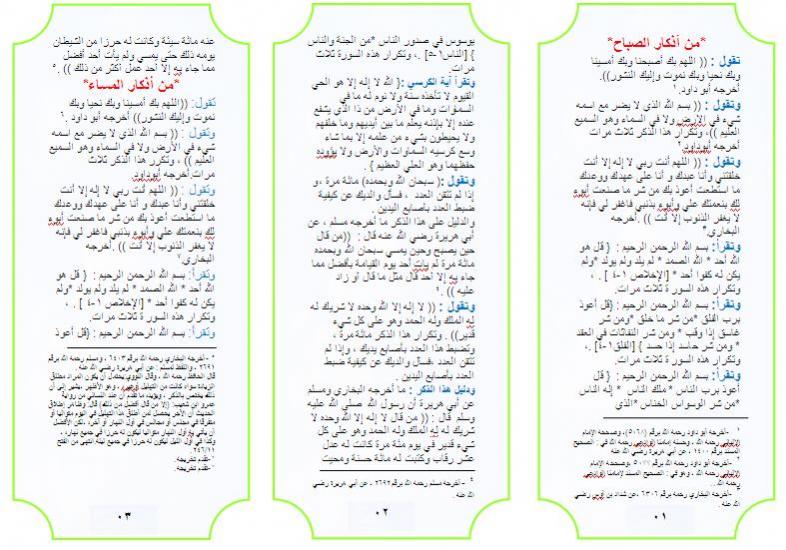 *من أذكار الصباح*
تقول : (( اللهم بك أصبحنا وبك أمسينا
وبك نحيا وبك نموت وإليك النشور)).
أخرجه أبو داود.
وتقول : (( بسم الله الذي لا يضر مع اسمه
شيء في الأرض ولا في السماء وهو السميع
العليم ))، وتكرار هذا الذكر ثلاث مرات
أخرجه أبوداود
وتقول : (( اللهم أنت ربي لا إله إلا أنت
خلقتني وأنا عبدك و أنا على عهدك ووعدك
ما استطعت أعوذ بك من شر ما صنعت أبوء
لك بنعمتك علي وأبوء بذنبي فاغفر لي فإنه
لا يغفر الذنوب إلا أنت )) .أخرجه
البخاري
وتقرأ: بسم الله الرحمن الرحيم : { قل هو
الله أحد * الله الصمد * لم يلد ولم يولد *ولم
يكن له كفوا أحد * [الإخلاص ١-٤ ] . ،
وتكرار هذه السورة ثلاث مرات
وتقرأ: بسم الله الرحمن الرحيم : {قل أعوذ
برب الفلق *من شر ما خلق *ومن شر
غاسق إذا وقب * ومن شر النفاثات في العقد
* ومن شر حاسد إذا حسد } [الفلق١-٥] .،
وتكرار هذه السورة ثلاث مرات.
وتقرأ: بسم الله الرحمن الرحيم : { قل
أعوذ برب الناس * ملك الناس * إله الناس
*من شر الوسواس الخناس *الذي
١ -أخرجه أبو داود رحمه الله برقم (٥٠٦٨)، وصححه الإمام
٢ -أخرجه أبو داود رحمه الله برقم ٥٠٧٧ ،وصححه الإمام
رحمه الله .
٣ -أخرجه البخاري رحمه الله برقم ٦٣٠٦ ، عن شداد بن أوس رضي
الله عنه .
٠١
يوسوس في صدور الناس *من الجنة والناس
} [الناس١-٥] .، وتكرار هذه السورة ثلاث
مرات.
وتقرأ آية الكرسي :{ الله لا إله إلا هو الحي
القيوم لا تأخذه سنة ولا نوم له ما في
السموات وما في الأرض من ذا الذي يشفع
عنده إلا بإذنه يعلم ما بين أيديهم وما خلفهم
ولا يحيطون بشيء من علمه إلا بما شاء
وسع كرسيه السماوات والأرض ولا يؤوده
حفظهما وهو العلي العظيم } .
وتقول : ( سبحان الله وبحمده) مائة مرة ،و
إذا لم تتقن العدد ، فسأل والديك عن كيفية
ضبط العدد بأصابع اليدين.
والدليل على هذا الذكر ما أخرجه مسلم ، عن
أبي هريرة رضي الله عنه قال : ((من قال
حين يصبح وحين يمسي سبحان الله وبحمده
مائة مرة لم يأت أحد يوم القيامة بأفضل مما
جاء به إلا أحد قال مثل ما قال أو زاد
عليه )) .
وتقول : (( لا إله إلا الله وحده لا شريك له
له الملك وله الحمد وهو على كل شيء
قدير)) . وتكرار هذا الذكر مائة مرة،
وتضبط هذا العدد بأصابع يديك ، وإذا لم
تتقن العدد ،فسأل والديك عن كيفية ضبط
العدد بأصابع اليدين.
ودليل هذا الذكر : ما أخرجه البخاري ومسلم
عن أبي هريرة أن رسول الله صلى الله عليه
وسلم قال : (( من قال لا إله إلا الله وحده لا
شريك له له الملك وله الحمد وهو على كل
شيء قدير في يوم مئة مرة كانت له عدل
عشر رقاب وكتبت له مائة حسنة ومحيت
٤ -أخرجه مسلم رحمه الله برقم ٢٦٩٢ ، عن أبي هريرة رضي الله
عنه .
٠٢
عنه مائة سيئة وكانت له حرزا من الشيطان
يومه ذلك حتى يمسي ولم يأت أحد أفضل
مما جاء به إلا أحد عمل أكثر من ذلك )) .
*من أذكار المساء*
تقول: ((اللهم بك أمسينا وبك نحيا وبك
نموت وإليك النشور)) أخرجه أبو داود .
وتقول : (( بسم الله الذي لا يضر مع اسمه
شيء في الأرض ولا في السماء وهو السميع
العليم )) ، وتكرر هذا الذكر ثلاث
مرات.أخرجه أبوداود
وتقول : (( اللهم أنت ربي لا إله إلا أنت
خلقتني وأنا عبدك و أنا على عهدك ووعدك
ما استطعت أعوذ بك من شر ما صنعت أبوء
لك بنعمتك علي وأبوء بذنبي فاغفر لي فإنه
لا يغفر الذنوب إلا أنت )) .أخرجه
البخاري
وتقرأ: بسم الله الرحمن الرحيم : { قل هو
الله أحد * الله الصمد * لم يلد ولم يولد *ولم
يكن له كفوا أحد * [الإخلاص ١-٤ ] . ،
وتكرار هذه السورة ثلاث مرات
وتقرأ: بسم الله الرحمن الرحيم : {قل أعوذ
٥ -أخرجه البخاري رحمه الله برقم ٦٤٠٣ ، ومسلم رحمه الله برقم
٢٦٩١ ، واللفظ لمسلم : عن أبي هريرة رضي الله عنه .
٢٤٦/١١
٦ -تقدم تخريجه.
٧ -تقدم تخريجه .
٠٣